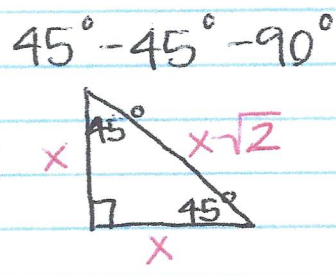 45°-45°-90°
45°
x
x√2
45°
x